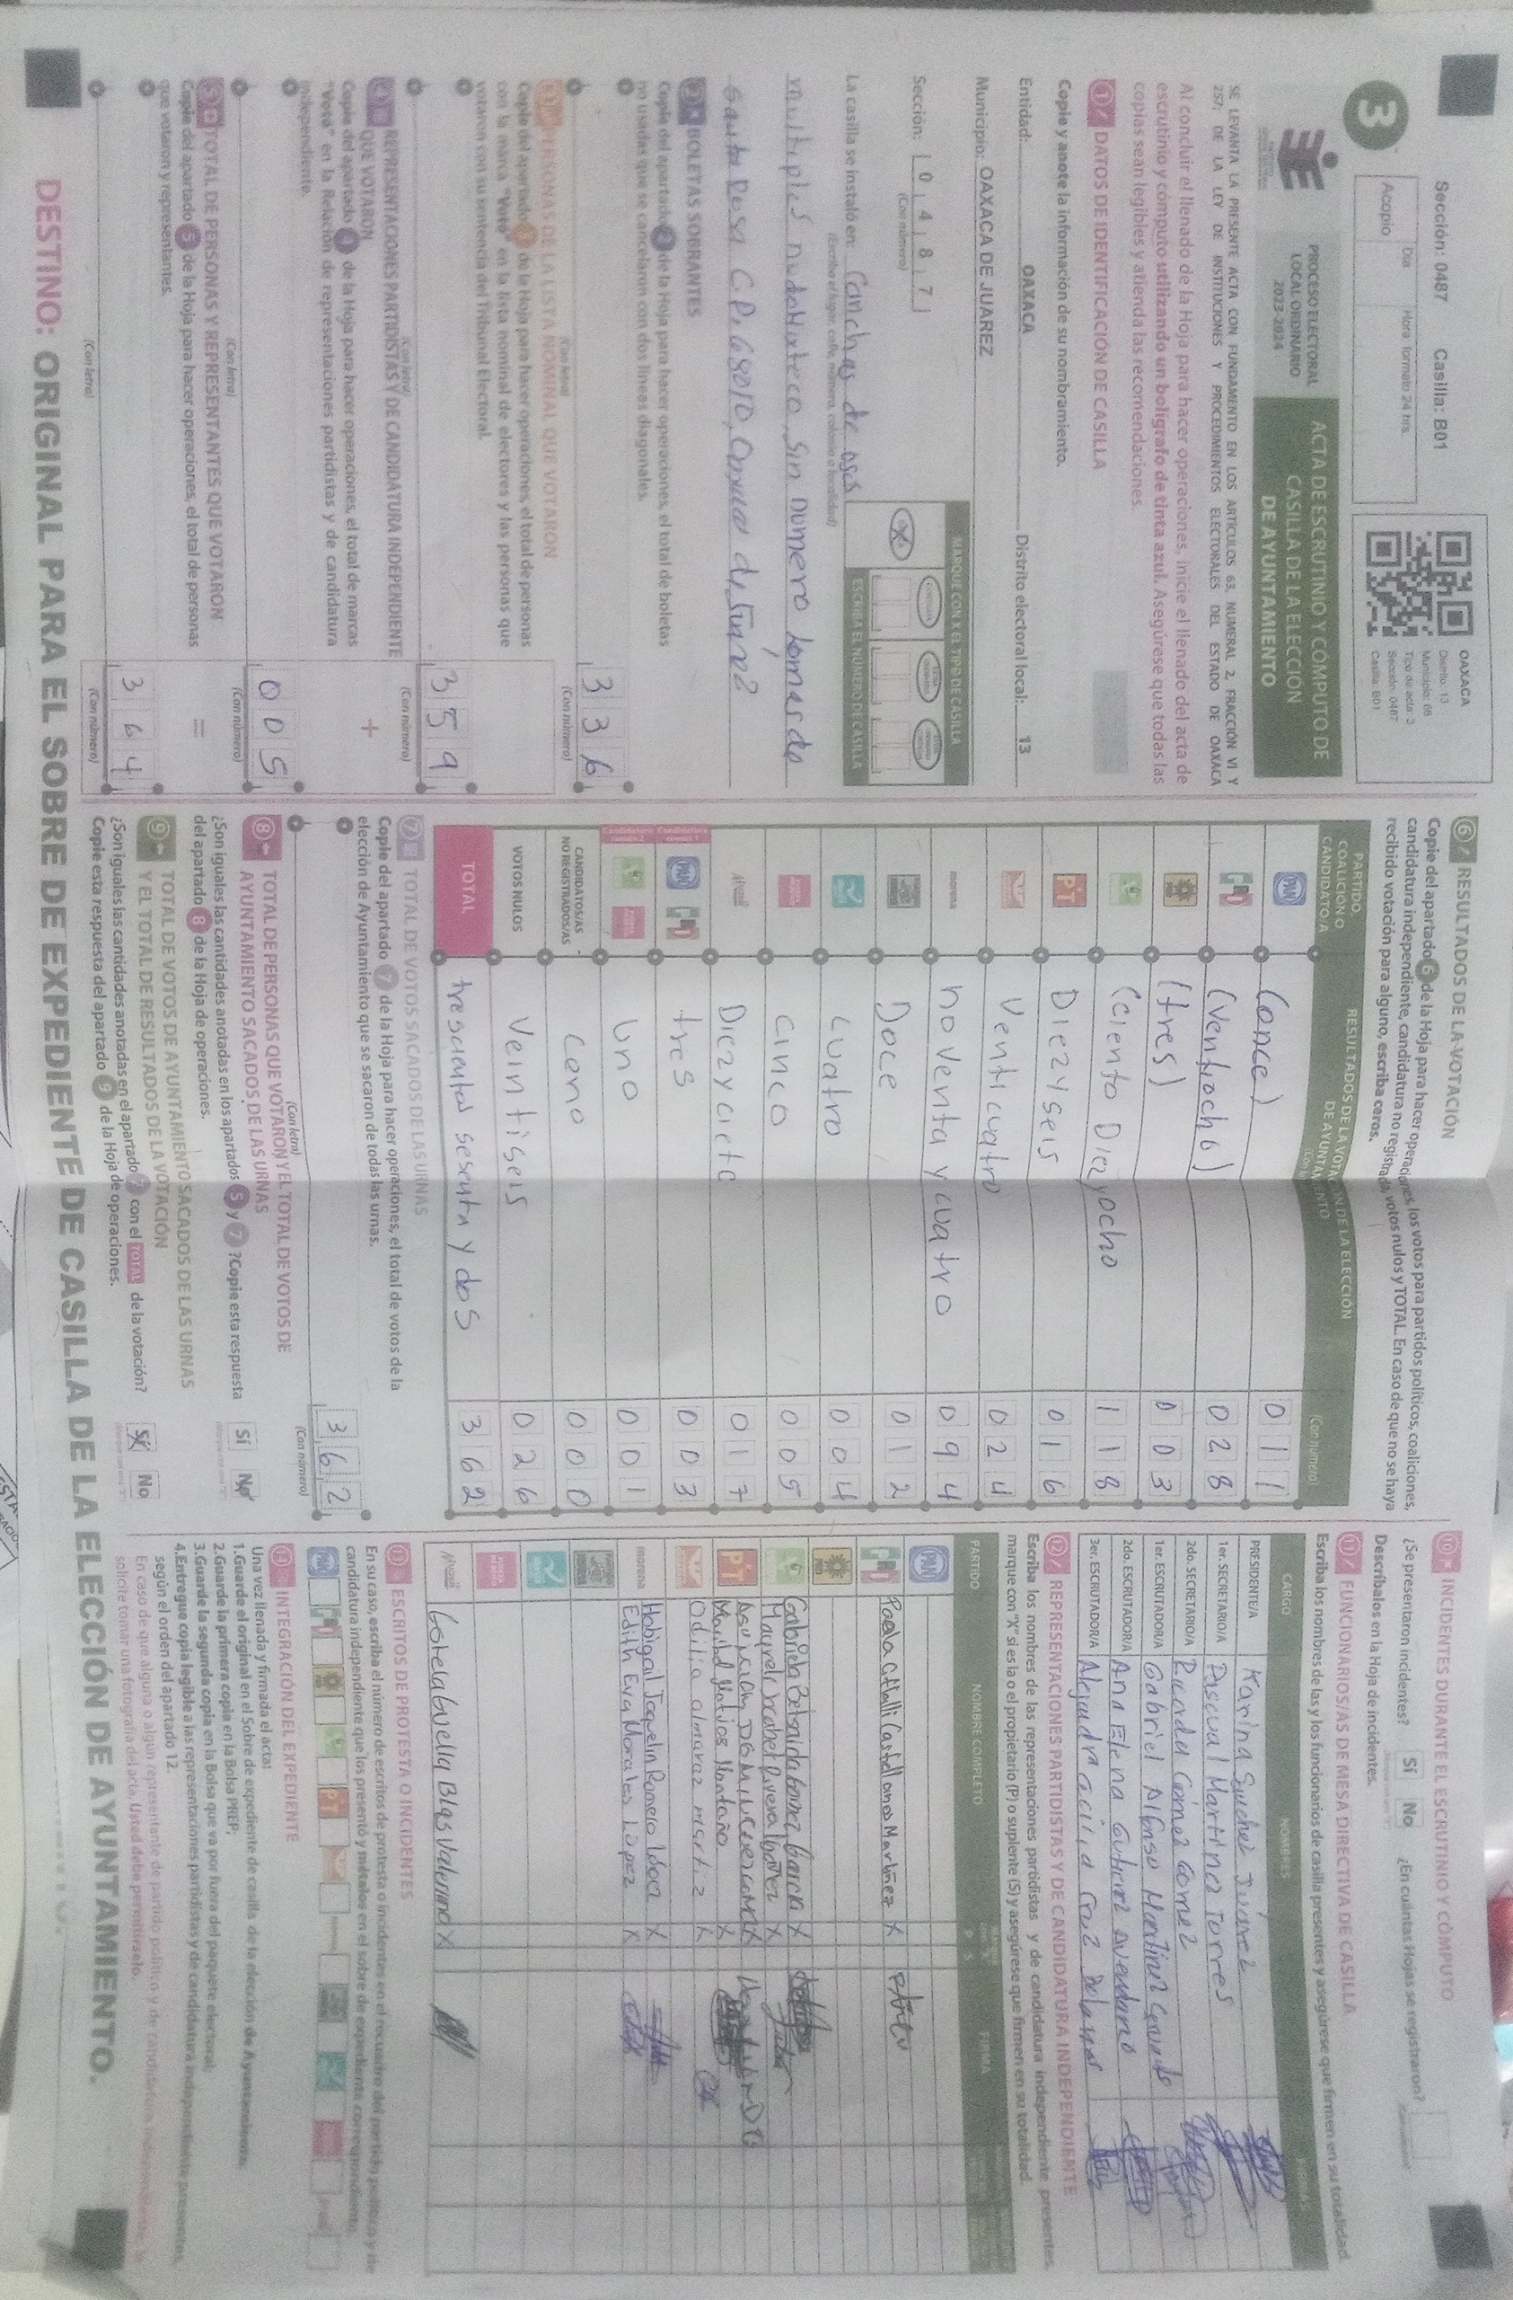 Sección: 0487 Casilla: B01
3
Día Hora formato 24 hrs.
Acopio
OAXACA
Distrito: 13
Municipio: 66
Tipo de acta: 3
Sección: 0487
Casilla: B01
PROCESO ELECTORAL
LOCAL ORDINARIO
2023-2024
ACTA DE ESCRUTINIO Y CÓMPUTO DE
CASILLA DE LA ELECCIÓN
DE AYUNTAMIENTO
SE LEVANTA LA PRESENTE ACTA CON FUNDAMENTO EN LOS ARTÍCULOS 63, NUMERAL 2, FRACCIÓN VI Y
257, DE LA LEY DE INSTITUCIONES Y PROCEDIMIENTOS ELECTORALES DEL ESTADO DE OAXACA
Al concluir el llenado de la Hoja para hacer operaciones, inicie el llenado del acta de
escrutinio y cómputo utilizando un bolígrafo de tinta azul. Asegúrese que todas las
copias sean legibles y atienda las recomendaciones.
1 DATOS DE IDENTIFICACIÓN DE CASILLA
Copie y anote la información de su nombramiento.
Entidad: OAXACA Distrito electoral local: 13
Municipio: OAXACA DE JUAREZ
Sección: 0 4 8 7
(Con número)
MARQUE CON X EL TIPO DE CASILLA
ESCRIBA EL NÚMERO DE CASILLA
La casilla se instaló en: Canchas de usos
(Escriba el lugar: calle, número, colonia o localidad)
multiples nudo Mixteco, sin numero lomas de
Santa Rosa C.P.
2 BOLETAS SOBRANTES
Copie del apartado 2 de la Hoja para hacer operaciones, el total de boletas
no usadas que se cancelaron con dos líneas diagonales.
3 3 6
(Con letra) (Con número)
3 PERSONAS DE LA LISTA NOMINAL QUE VOTARON
Copie del apartado 3 de la Hoja para hacer operaciones, el total de personas
con la marca "Votó" en la lista nominal de electores y las personas que
votaron con su sentencia del Tribunal Electoral.
3 5 9
(Con letra) (Con número)
4 REPRESENTACIONES PARTIDISTAS Y DE CANDIDATURA INDEPENDIENTE
QUE VOTARON
+
Copie del apartado 4 de la Hoja para hacer operaciones, el total de marcas
"Votó" en la Relación de representaciones partidistas y de candidatura
independiente.
0 0 5
(Con letra) (Con número)
5 TOTAL DE PERSONAS Y REPRESENTANTES QUE VOTARON
=
Copie del apartado 5 de la Hoja para hacer operaciones, el total de personas
que votaron y representantes.
3 6 4
(Con letra) (Con número)
6 RESULTADOS DE LA VOTACIÓN
Copie del apartado 6 de la Hoja para hacer operaciones, los votos para partidos políticos, coaliciones,
candidatura independiente, candidatura no registrada, votos nulos y TOTAL. En caso de que no se haya
recibido votación para alguno, escriba ceros.
PARTIDO,
COALICIÓN O
CANDIDATO/A
RESULTADOS DE LA VOTACIÓN DE LA ELECCIÓN
DE AYUNTAMIENTO
(Con número)
PAN (once) 0 1 1
(Ventiocho) 0 2 8
(tres) 0 0 3
(ciento Diezyocho 1 1 8
PT Diezyseis 0 1 6
Venticuatro 0 2 4
morena noventa y cuatro 0 9 4
Doce 0 1 2
cuatro 0 0 4
cinco 0 0 5
Diezyciete 0 1 7
PAN tres 0 0 3
uno 0 0 1
CANDIDATOS/AS
NO REGISTRADOS/AS
cero 0 0 0
VOTOS NULOS veintiseis 0 2 6
TOTAL tresientos sesenta y dos 3 6 2
7 TOTAL DE VOTOS SACADOS DE LAS URNAS
Copie del apartado 7 de la Hoja para hacer operaciones, el total de votos de la
elección de Ayuntamiento que se sacaron de todas las urnas.
3 6 2
(Con letra) (Con número)
8 TOTAL DE PERSONAS QUE VOTARON Y EL TOTAL DE VOTOS DE
AYUNTAMIENTO SACADOS DE LAS URNAS
¿Son iguales las cantidades anotadas en los apartados 5 y 7? Copie esta respuesta
del apartado 8 de la Hoja de operaciones.
Sí No
9 TOTAL DE VOTOS DE AYUNTAMIENTO SACADOS DE LAS URNAS
Y EL TOTAL DE RESULTADOS DE LA VOTACIÓN
¿Son iguales las cantidades anotadas en el apartado 7 con el TOTAL de la votación?
Copie esta respuesta del apartado 9 de la Hoja de operaciones.
Sí No
10 INCIDENTES DURANTE EL ESCRUTINIO Y CÓMPUTO
¿Se presentaron incidentes? Sí No ¿En cuántas Hojas se registraron?
Descríbalos en la Hoja de incidentes.
11 FUNCIONARIOS/AS DE MESA DIRECTIVA DE CASILLA
Escriba los nombres de las y los funcionarios de casilla presentes y asegúrese que firmen en su totalidad.
CARGO NOMBRES
PRESIDENTE/A Karina Sanchez
1er. SECRETARIO/A Pascual Martinez Torres
2do. SECRETARIO/A Ricarda Gómez Gómez
1er. ESCRUTADOR/A Gabriel Alfonso Martinez
2do. ESCRUTADOR/A Ana Elena Gutierrez Avendano
3er. ESCRUTADOR/A Alejandra
12 REPRESENTACIONES PARTIDISTAS Y DE CANDIDATURA INDEPENDIENTE
Escriba los nombres de las representaciones partidistas y de candidatura independiente presentes,
marque con "X" si es la o el propietario (P) o suplente (S) y asegúrese que firmen en su totalidad.
PARTIDO NOMBRE COMPLETO P S FIRMA
PAN
Paola Citlalli Castellanos Martinez X
X
X
X
PT X
Odilia almaraz X
Habigail Joquelin Romero X
morena Edith Eva Morales López X
Estela Guella Blas Valeriano X
13 ESCRITOS DE PROTESTA O INCIDENTES
En su caso, escriba el número de escritos de protesta o incidentes en el recuadro del partido político y de
candidatura independiente que los presentó y métalos en el sobre de expediente correspondiente.
14 INTEGRACIÓN DEL EXPEDIENTE
Una vez llenada y firmada el acta:
1. Guarde el original en el Sobre de expediente de casilla de la elección de Ayuntamiento.
2. Guarde la primera copia en la Bolsa PREP.
3. Guarde la segunda copia en la Bolsa que va por fuera del paquete electoral.
4. Entregue copia legible a las representaciones partidistas y de candidatura independiente presentes,
según el orden del apartado 12.
En caso de que alguna o algún representante de partido político y de candidatura independiente, le
solicite tomar una fotografía del acta, Usted debe permitírselo.
DESTINO: ORIGINAL PARA EL SOBRE DE EXPEDIENTE DE CASILLA DE LA ELECCIÓN DE AYUNTAMIENTO.